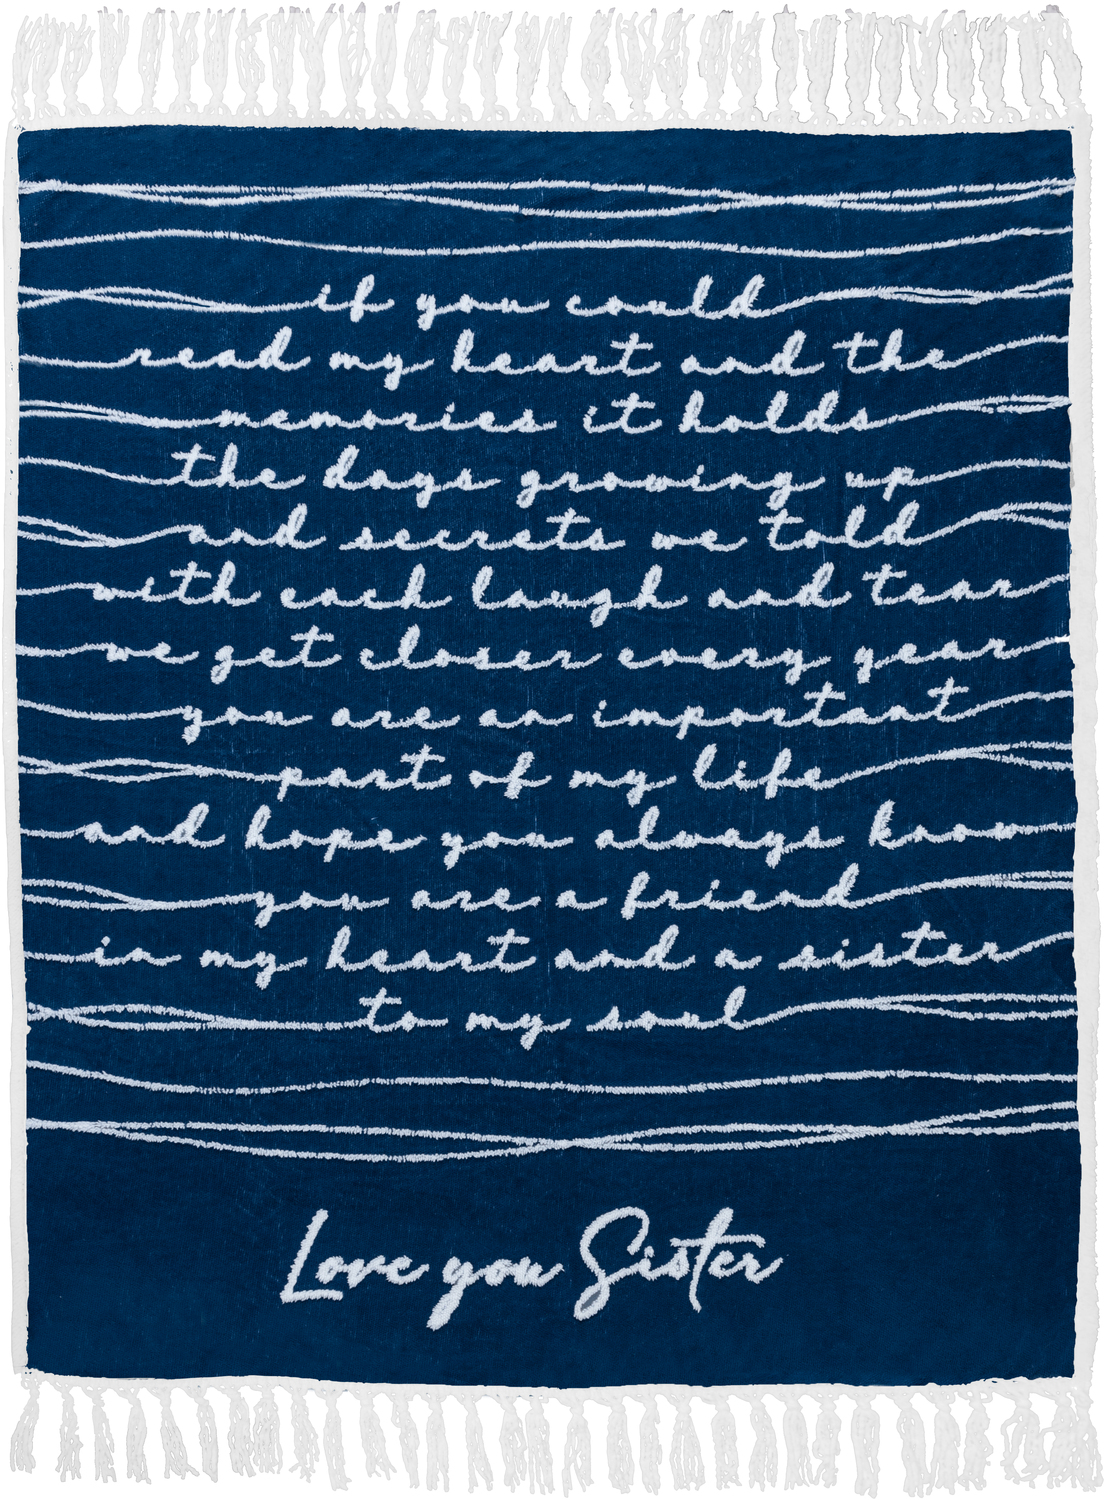 if you could
read my heart and the
memories it holds
the days growing up
and secrets we told
with each laugh and tear
we get closer every year
you are an important
part of my life
and hope you always know
you are a friend
in my heart and a sister
to my soul
Love you Sister